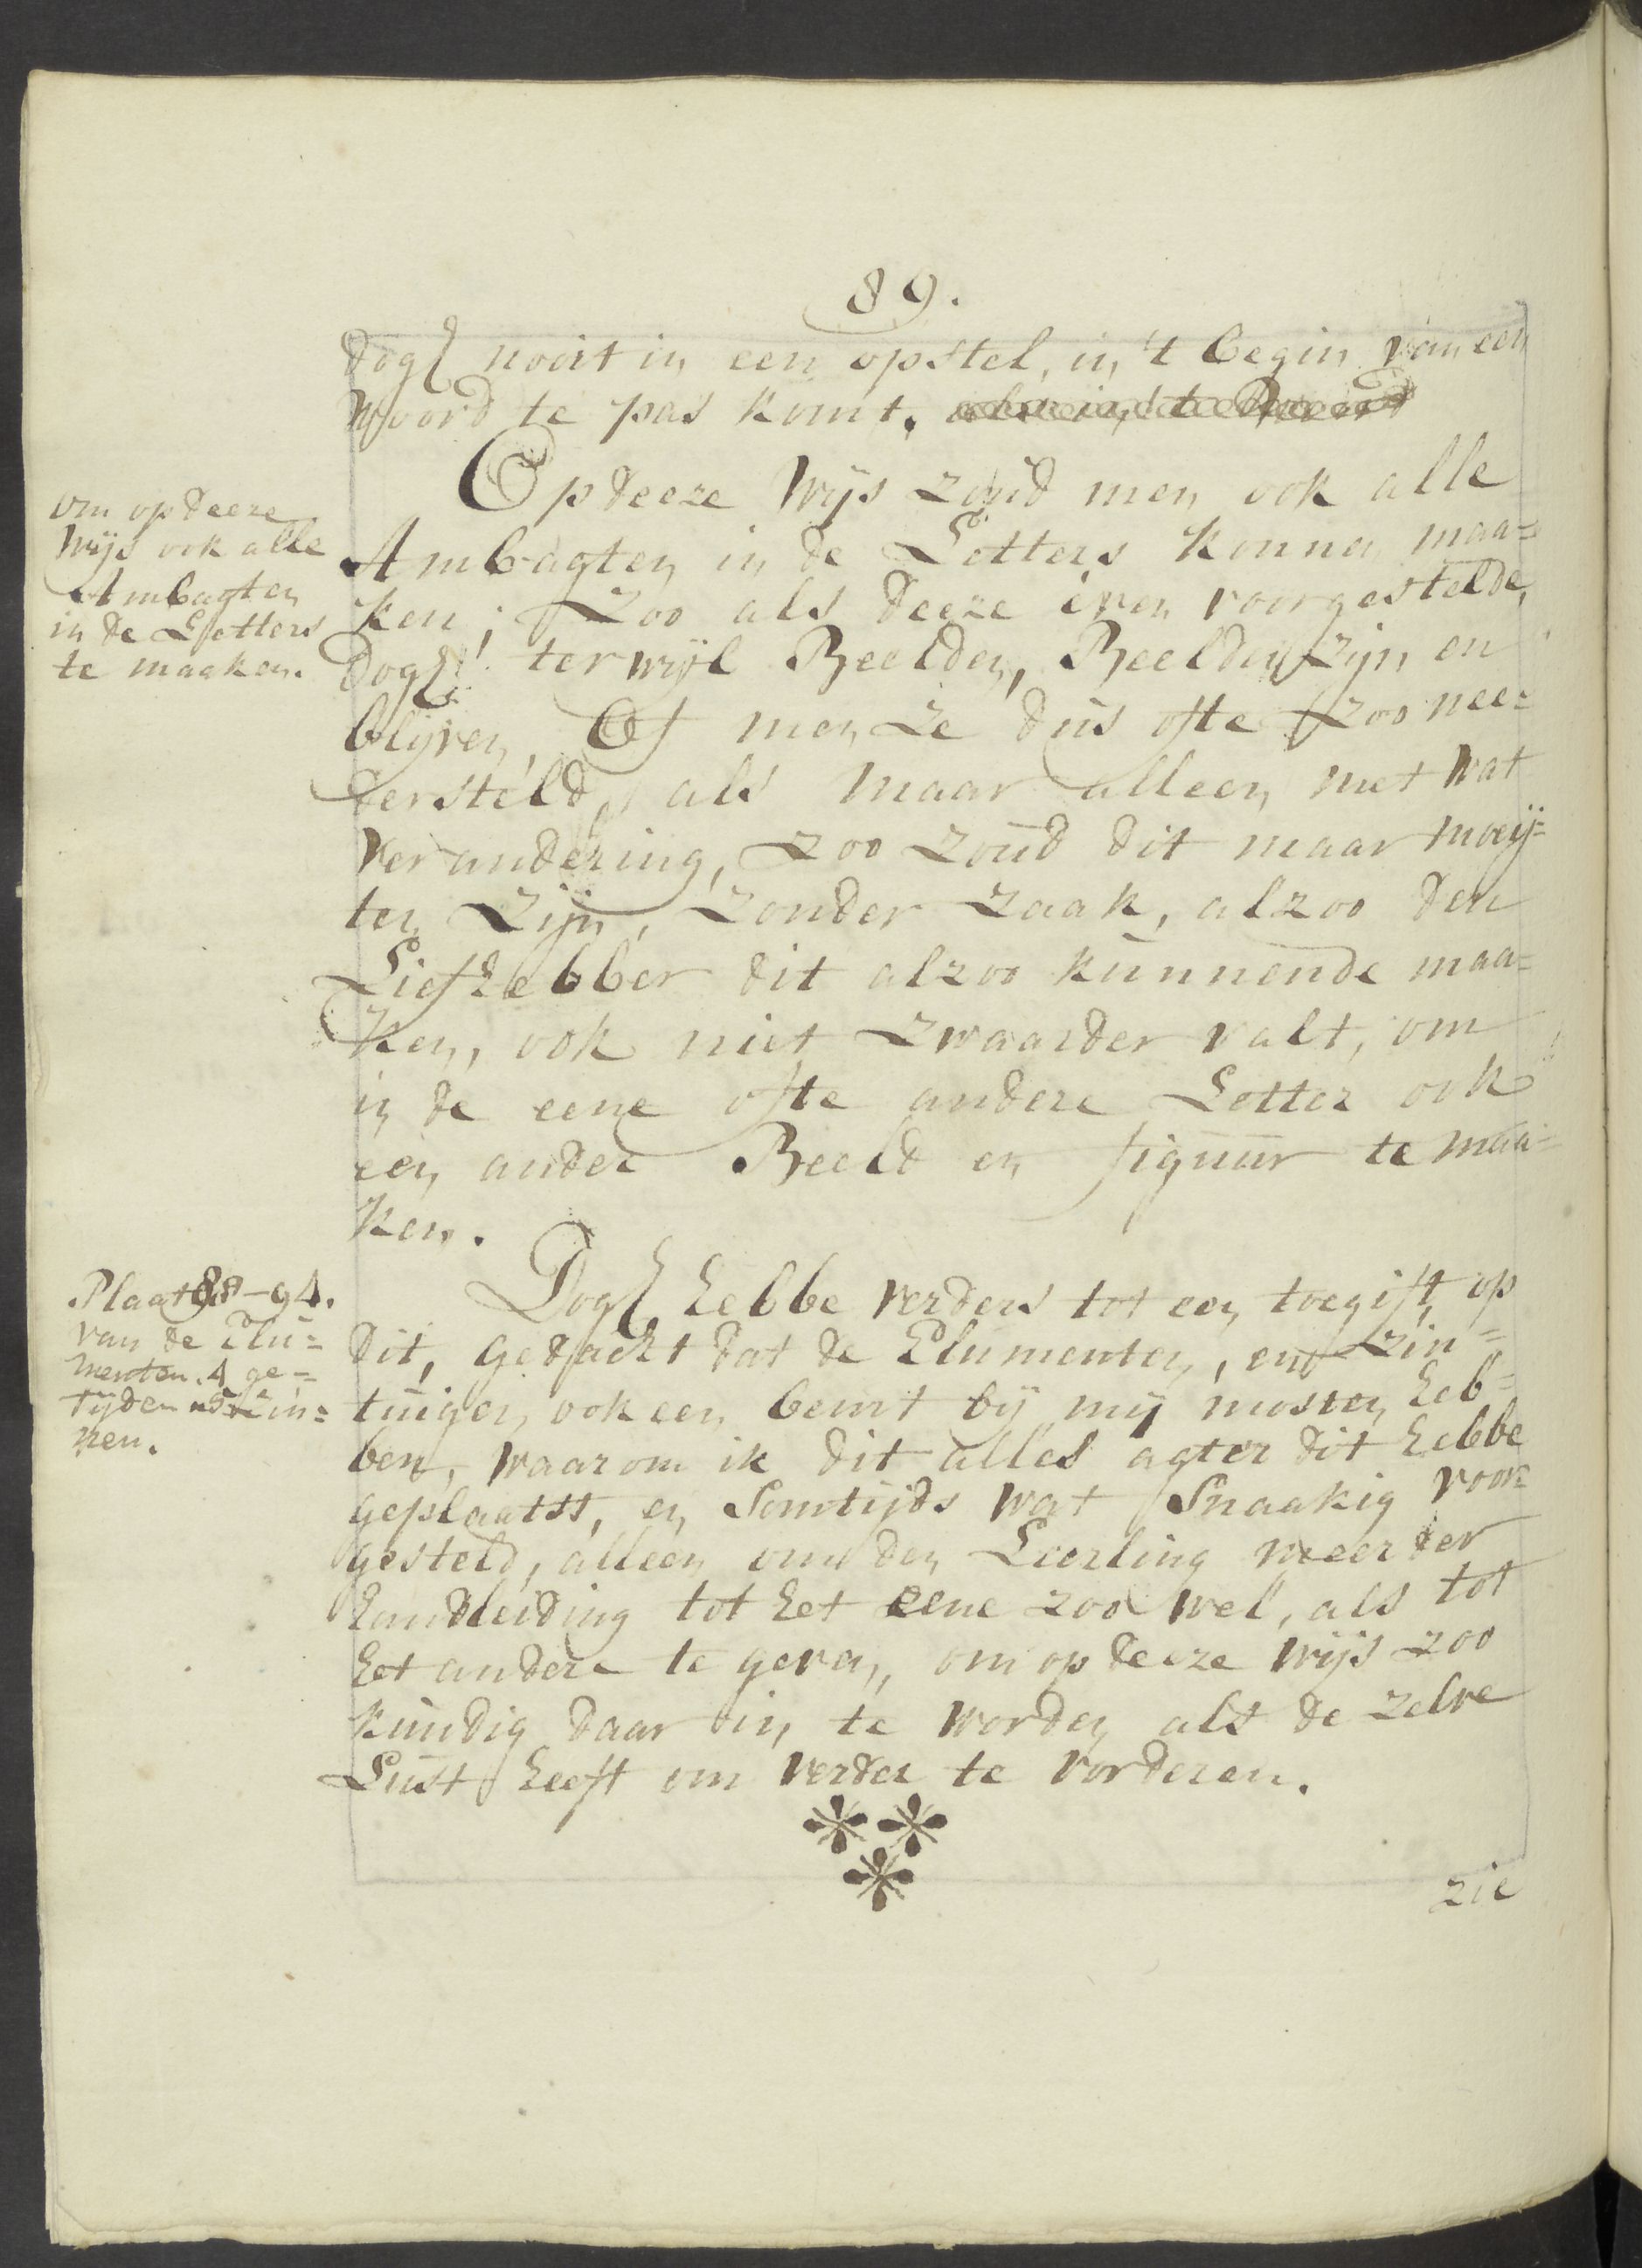 89.
dogh nooit in een opstel, in 't begin van een
woord te pas komt.
Op deeze wijs zoud men ook alle
Ambagten in de Letters konnen maa=
ken; Zoo als deeze even voorgestelde,
dogh! terwijl Beelden, Beelden zijn en
blijven, Of men ze dus ofte zoo nee=
dersteld, als maar alleen met wat
verandering, zoo zoud dit maar moeij=
ten zijn, zonder zaak, alzoo den
Liefhebber dit alzoo kunnende maa=
ken, ook niet zwaarder valt, om
in de eene ofte andere Letter ook
een ander Beeld en figuur te maa=
ken.
Dogh hebbe verders tot een toegift, op
dit, gedacht dat de Elumenten, en zin=
tuigen, ook een beurt bij mij mosten heb=
ben, waarom ik dit alles agter dit hebbe
geplaatst, en Somtijds wat Snaakig voor=
gesteld, alleen om den Leerling meerder
handleiding tot het eene zoo wel, als tot
het andere te geven, om op deeze wijs zoo
kundig daar in te worden als de zelve
Lust heeft om verder te vorderen.
zie
om op deeze
wijs ook alle
Ambagten
in de Letters
te maaken.
Plaat 88-94.
van de Elu=
menten. 4 ge=
tijden 5 zin=
nen.